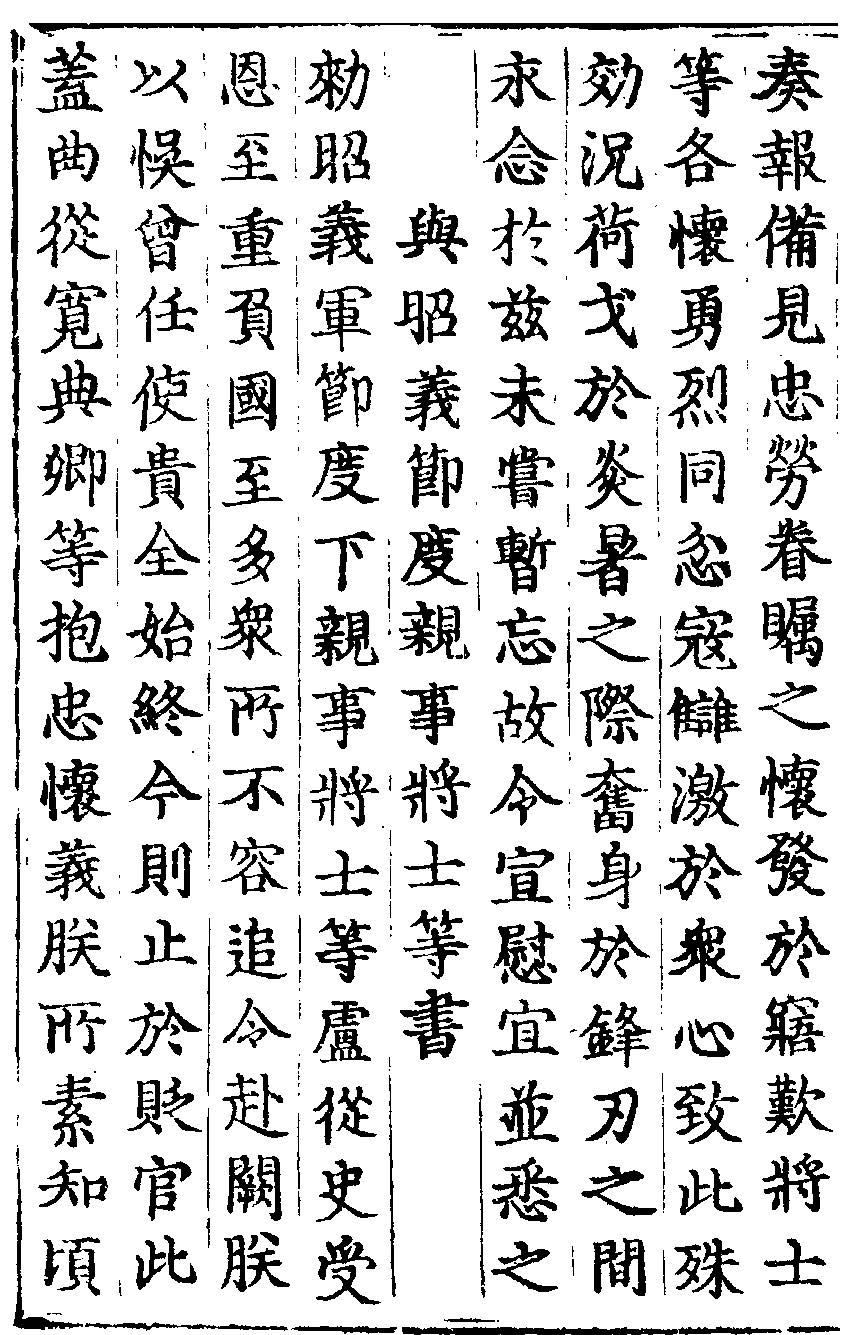 奏報備見忠勞眷矚之懷發於寤歎將士
等各懷勇烈同忿寇讎激於衆心致此殊
効況荷戈於炎暑之際奮身於鋒刃之間
永念於兹未嘗暫忘故令宣慰宜並悉之
與昭義節度親事將士等書
勑昭義軍節度下親事將士等盧從史受
恩至重負國至多衆所不容追令赴闕朕
以悮曾任使貴全始終今則止於貶官此
蓋曲從寛典卿等抱忠懷義朕所素知頃